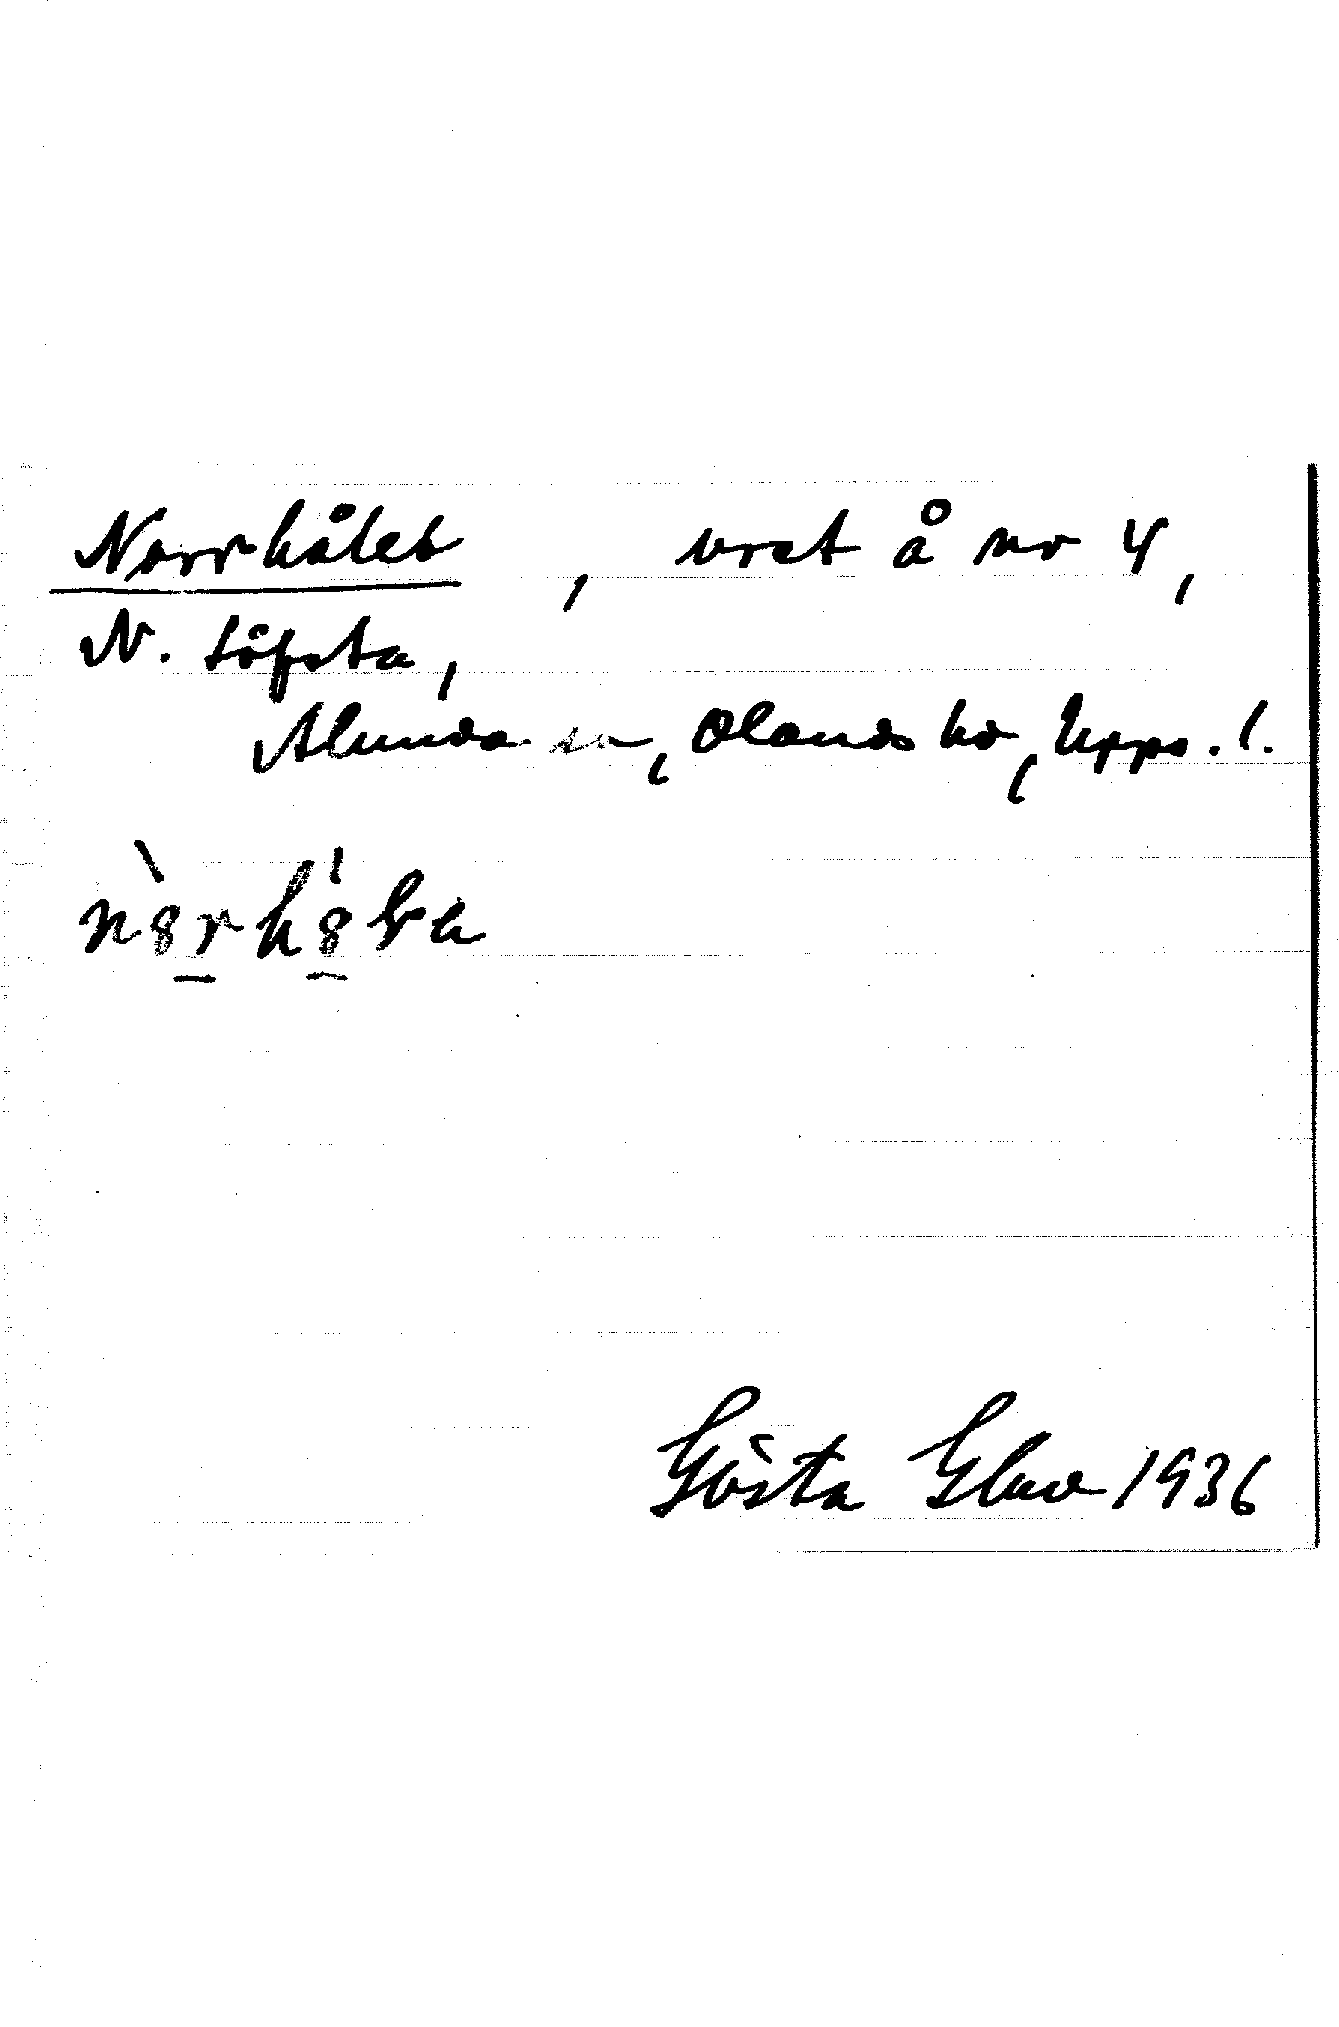 Norrhålet, vret å nr 4,
N. Löfsta,
Alunda sn, Olands hd, Upps. l.
Gösta Elmer 1936